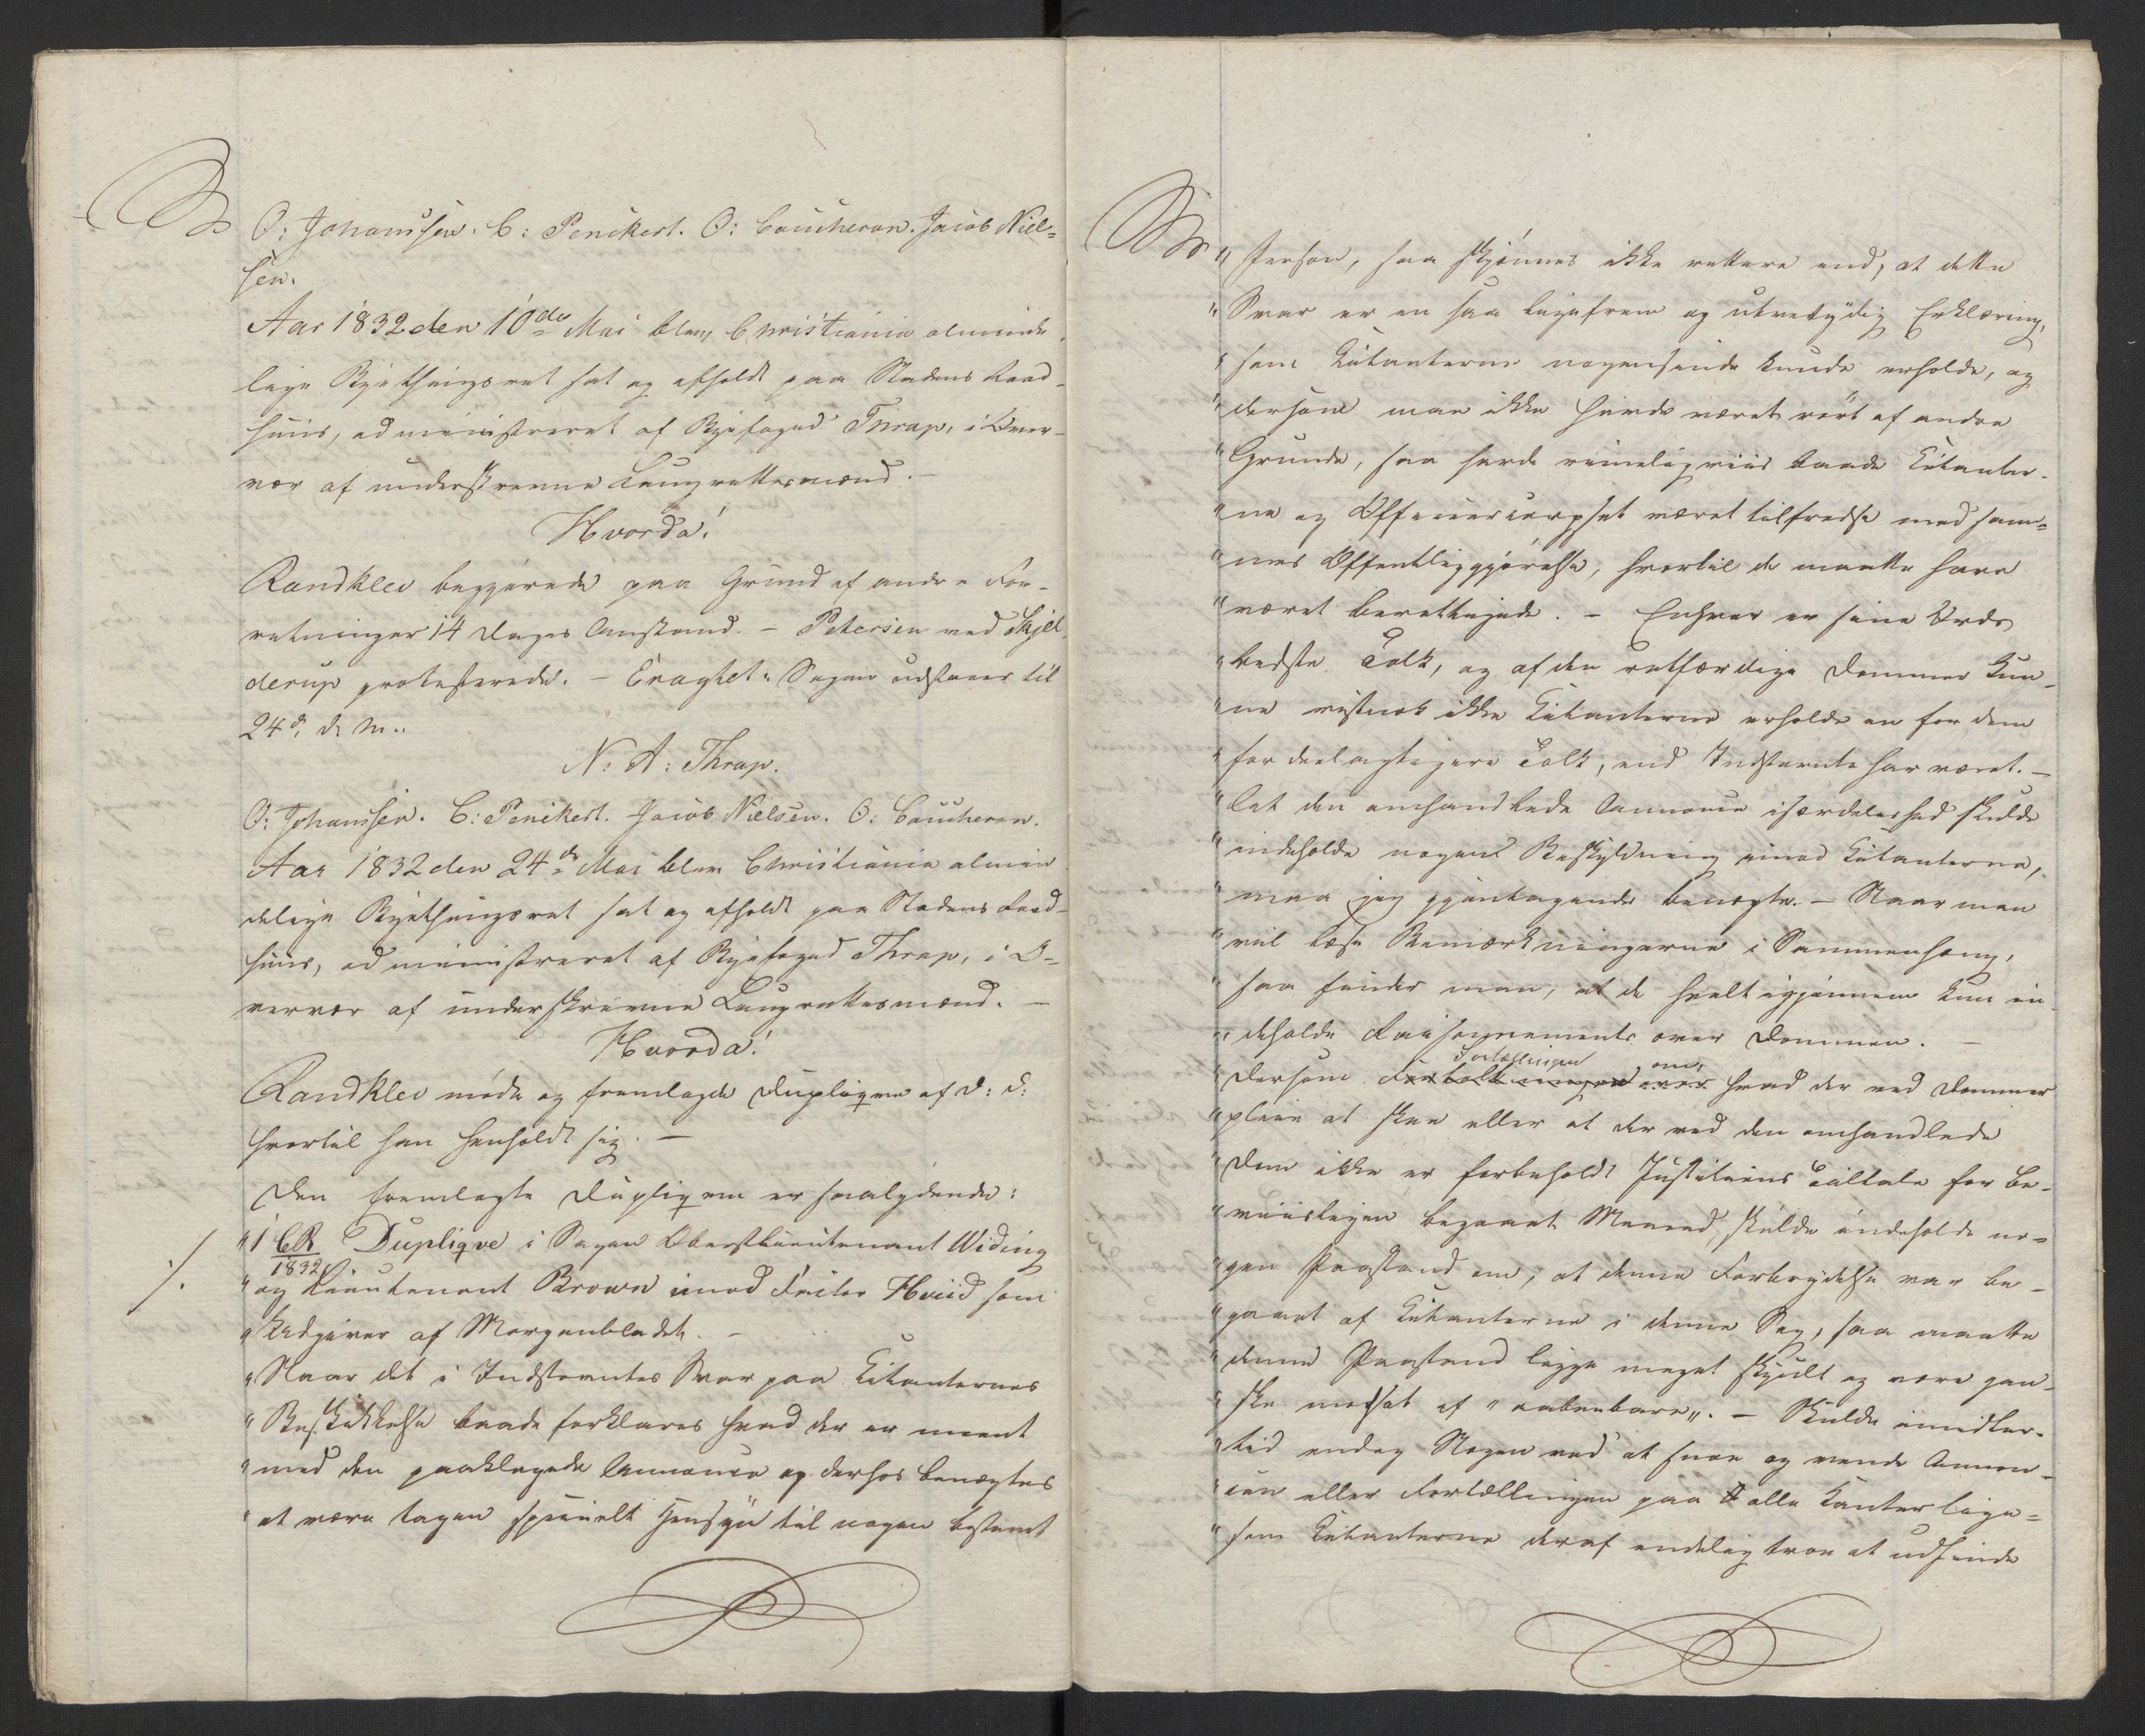 O: Johanssen. C: Penckert. O: Coucheron. Jacob Niel-
sen.
Aar 1832 den 10de Mai blev Christiania alminde
lige Byethingsret sat og afholdt paa Stadens Raad-
huus, administreret af Byefoged Thrap, i Over-
vær af underskrevne Laugrettesmænd.
Hvorda!
Randklev begjærede paa Grund af andre For-
retninger 14 Dages Anstand. - Petersen ved Skjel
derup protesterede. - Eragtet: Sagen udstaaer til
24d. d. M..
N: A: Thrap.
O: Johanssen. C: Penckert. Jacob Nielsen. O: Coucheron.
Aar 1832 den 24de Mai blev Christiania almin
delige Byethingsret sat og afholdt paa Stadens Raad-
huus, administreret af Byefoged Thrap, i O-
vervær af underskrevne Laugrettesmænd. -
Hvorda!
Randklev mødte og fremlagde Dupliqve af D: D:
hvortil han henholdt sig. -
Den fremlagte Dupliqve er saalydende:
"1 CR Dupliqve i Sagen Oberstlieutenant Widing
1832
" og Lieutenant Brown imod Factor Hviid som
" Udgiver af Morgenbladet. -
" Naar det i Indstevntes Svar paa Citanternes
" Beskikkelse baade forklares hvad der er meent
" med den paaklagede Annonce og derhos benægtes
" at være tagen specielt Hensyn til nogen bestemt
" Person, saa skjønnes ikke rettere end, at dette
" Svar er en saa ligefrem og utvetydig Erklæring,
" som Citanterne nogensinde kunde erholde, og
" dersom man ikke havde været rørt af andre
" Grunde, saa havde rimeligviis baade Citanter-
" ne og Officiercorpset været tilfredse med sam-
" mes Offentliggjørelse, hvortil de maatte have
" været berettigede. - Enhver er sine Ords
" bedste Tolk, og af den retfærdige Dommer kun-
" ne vistnok ikke Citanterne erholde en for dem
" fordeelagtigere Tolk, end Indstevnte har været. -
" At den omhandlede Annonce isærdeleshed skulde
" indeholde nogen Beskyldning imod Citanterne,
" maa jeg gjentagende benægte. - Naar man
" vil læse Bemærkningerne i Sammenhæng,
" saa finder man, at de heelt igjennem kun in
" deholde Raisonnements over Dommen. -
Fortællingen om,
" Dersom hvad der ved Dommer
" pleie at skee eller at der ved den omhandlede
" Dom ikke er forbeholdt Justitiens Tiltale for be-
" viisligen begaaet Meened, skulde indeholde no-
" gen Paastand om, at denne Forbrydelse var be-
" gaaet af Citanterne i denne Sag, saa maatte
" denne Paastand ligge meget skjult og være gan-
" ske modsat af "aabenbare". - Skulde imidler-
" tid endog Nogen ved at snoe og vende Annon-
" cen eller Fortællingen paa alle Kanter lige-
" som Citanterne deraf endelig troe at udfinde